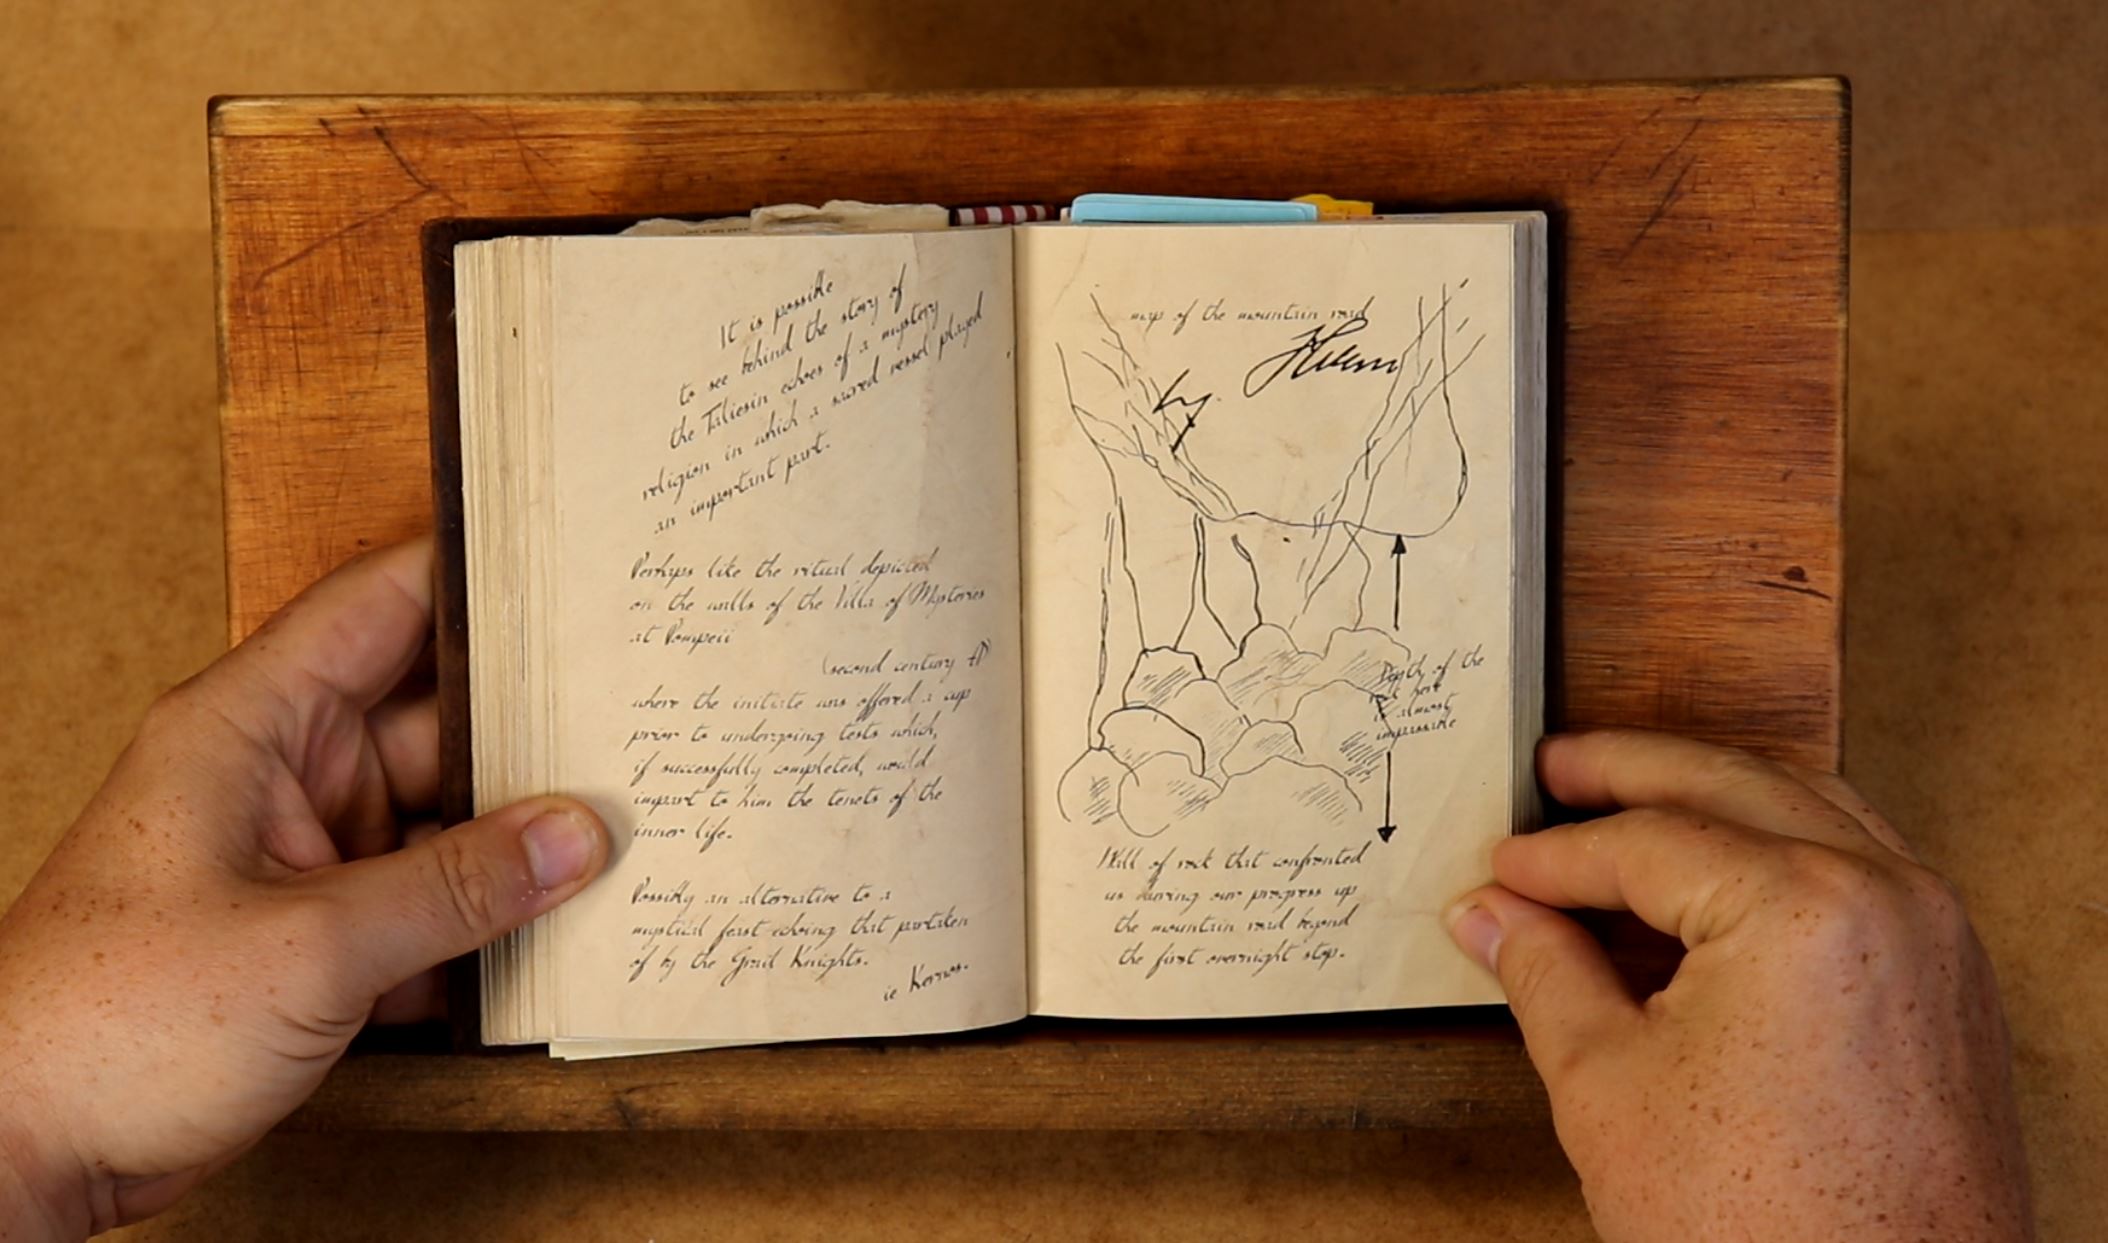 It is possible
to see behind the story of
the Taliesin echoes of a mystery
religion in which a sacred vessel played
an important part.
Perhaps like the ritual depicted
on the walls of the Villa of Mysteries
at Pompeii
(second century AD)
where the initiate was offered a cup
prior to undergoing tests which,
if successfully completed, would
impart to him the tenets of the
inner life.
Possibly an alternative to a
mystical feast echoing that partaken
of by the Grail Knights.
ie Kernos.
map of the mountain road
by
Depth of the
here
is almost
impassable
Wall of rock that confronted
us during our progress up
the mountain road beyond
the first overnight stop.